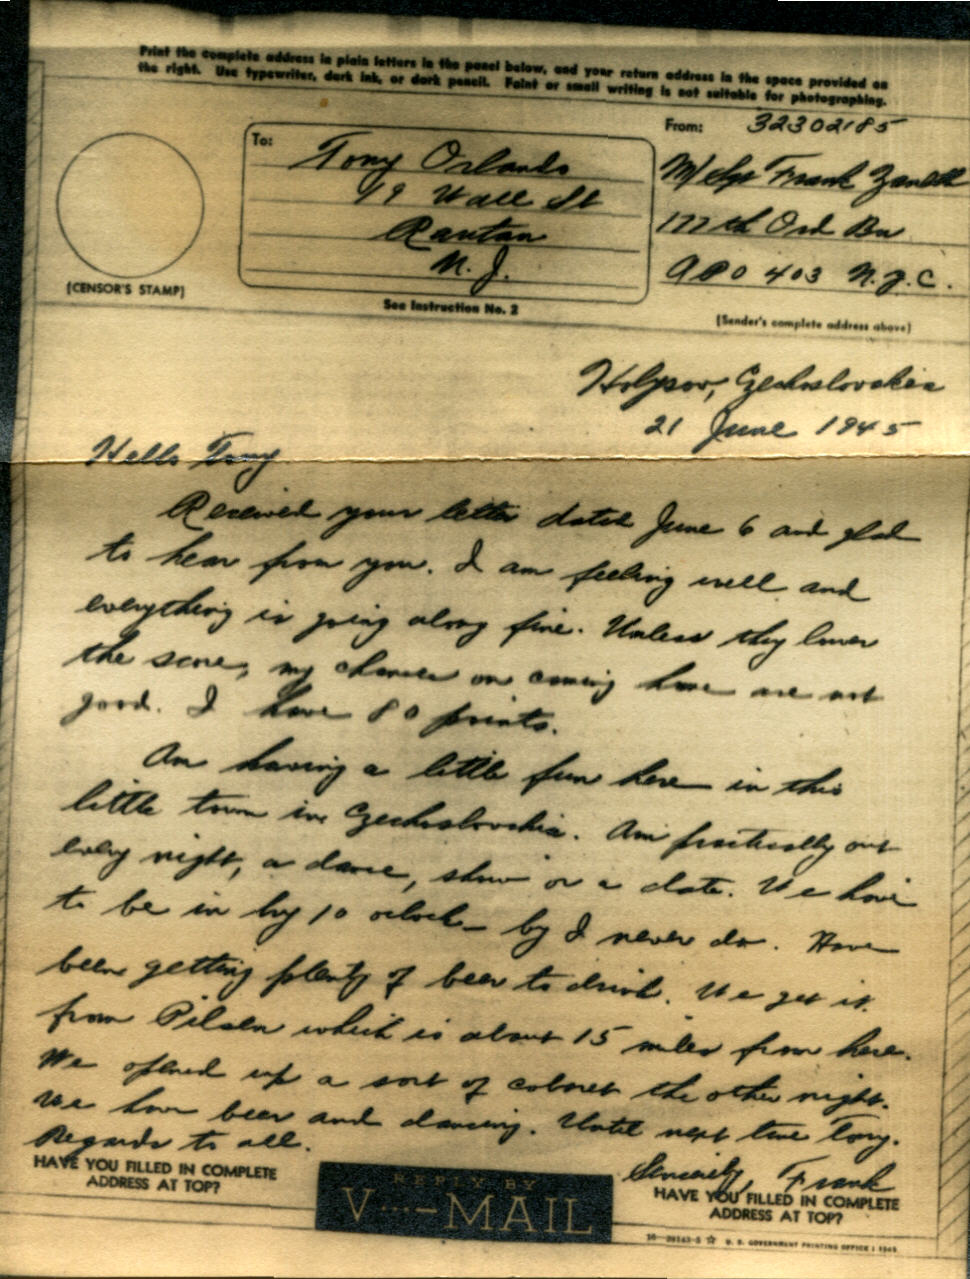 Print the complete address in plain letters in the panel below, and your return address in the space provided on
the right. Use typewriter, dark ink, or dark pencil. Faint or small writing is not suitable for photographing.
To:
Tony Orlando
19 Wall St
Raritan
N. J.
(CENSOR'S STAMP)
See Instruction No. 2
From: 32302185
M/Sgt Frank
177th Ord Bn
APO 403 N.Y.C.
(Sender's complete address above)
Holysov, Czechoslovakia
21 June 1945
Hello Tony
Received your letter dated June 6 and glad
to hear from you. I am feeling well and
everything is going along fine. Unless they lower
the score, my chances on coming home are not
good. I have 80 points.
Am having a little fun here in this
little town in Czechoslovakia. Am practically out
every night, a dance, show or a date. We have
to be in by 10 oclock – by I never do. Have
been getting plenty of beer to drink. We get it
from Pilsen which is about 15 miles from here.
We opened up a sort of cabaret the other night.
We have beer and dancing. Until next time Tony.
Regards to all.
Sincerely, Frank
HAVE YOU FILLED IN COMPLETE
ADDRESS AT TOP?
REPLY BY
V···–MAIL
HAVE YOU FILLED IN COMPLETE
ADDRESS AT TOP?
16—28143-5 ☆ U. S. GOVERNMENT PRINTING OFFICE : 1943